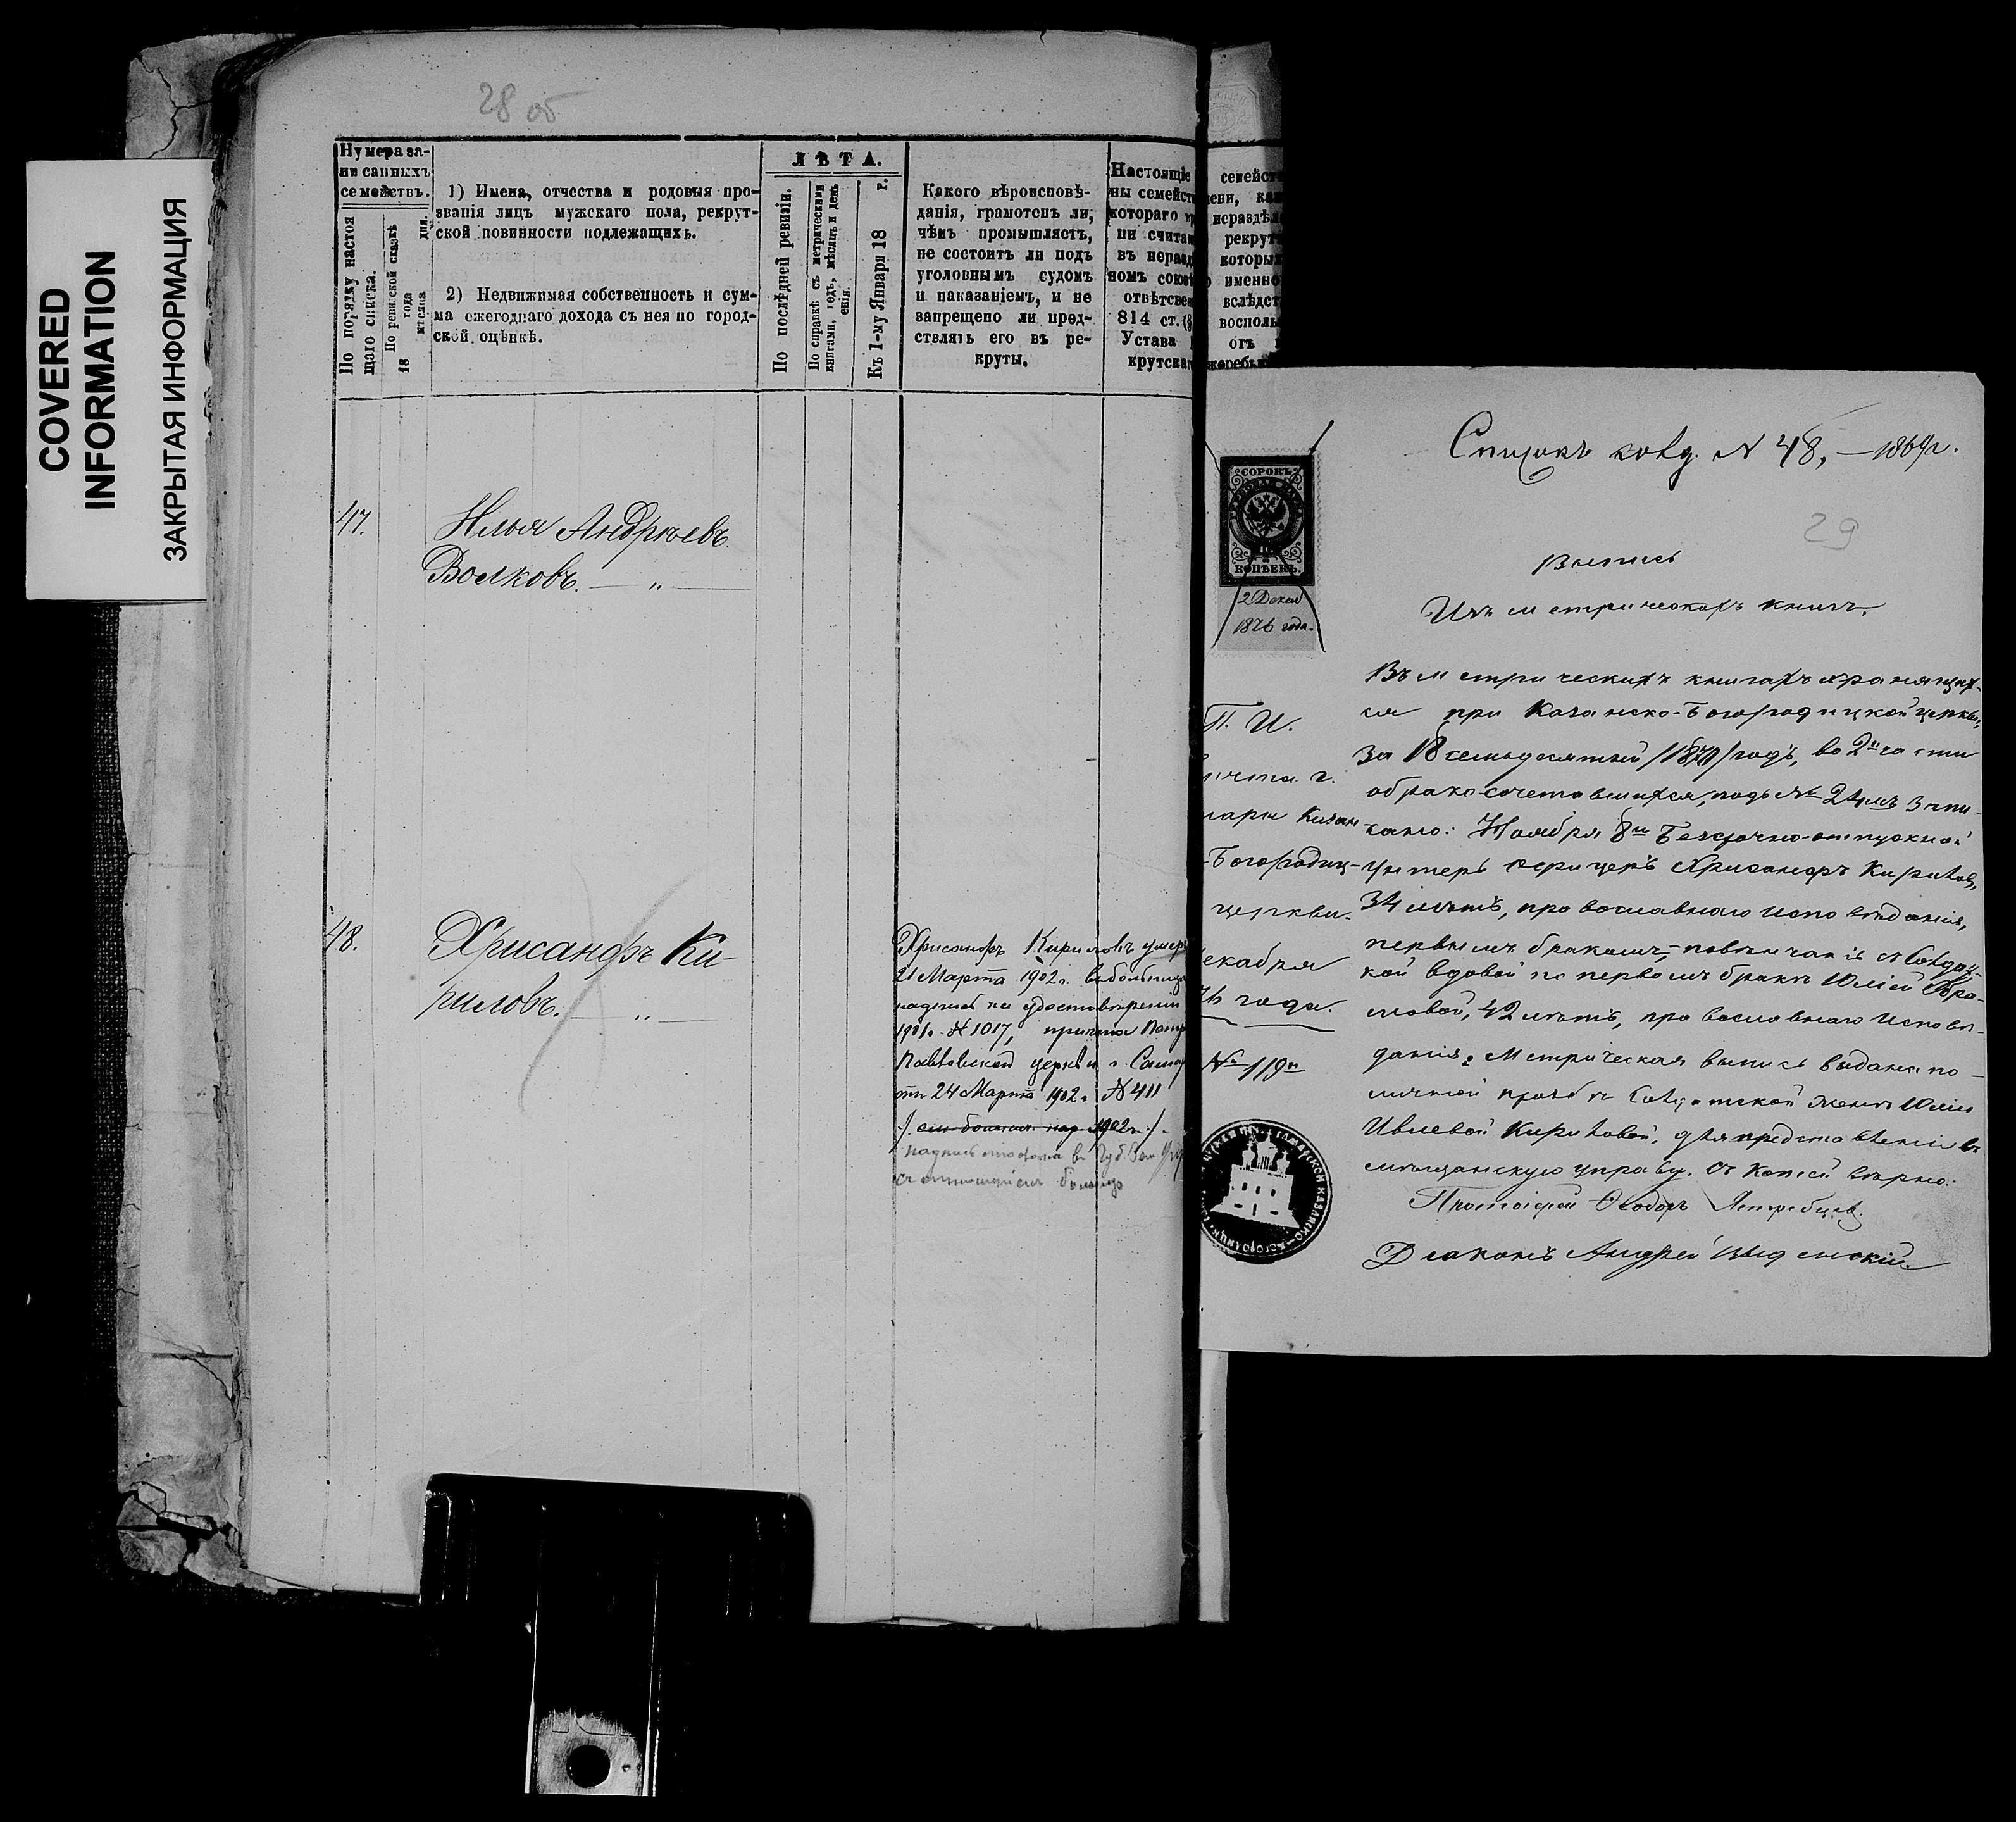 COVERED
INFORMATION
ЗАКРЫТАЯ ИНФОРМАЦИЯ
28 об
Нумера за-
писанныхъ
семействъ.
По порядку настоя
щаго списка.
По ревизской сказкѣ
18 года
мѣсяца дня.
1) Имена, отчества и родовыя про-
званія лицъ мужскаго пола, рекрут-
ской повинности подлежащихъ.
2) Недвижимая собственность и сум-
ма ежегоднаго дохода съ нея по город-
ской оцѣнкѣ.
ЛѢТА.
По послѣдней ревизіи.
По справкѣ съ метрическими
книгами, годъ, мѣсяцъ и день
енія.
Къ 1-му Января 18 г.
Какого вѣроисповѣ-
данія, грамотенъ ли,
чѣмъ промышляетъ,
не состоитъ ли подъ
уголовнымъ судомъ
и наказаніемъ, и не
запрещено ли пред-
ствлять его въ ре-
круты.
Настоящіе
ны семейст
котораго
ни считаю
въ нераз
номъ союз
отвѣтсвен
814 ст. (
Устава
крутскаг
семейст
мени, ка
нераздѣл
рекрут
которы
именно
вслѣдст
восполь
отъ
жеребь
47.
Илья Андрѣевъ
Волковъ. — „ —
48.
Хрисанфъ Ки-
риловъ. — „ —
Хрисанфъ Кириловъ умеръ
21 Марта 1902 г. въ больницѣ
надпись на удостовѣреніи
1901 г. № 1017, причта Петр
Павловской церкви г. Самар
отъ 24 Марта 1902 г. № 411
1902 г.
надпись
съ отношеніем
Списокъ солд. № 48, — 1869 г.
29
СОРОКЪ
40
КОПѢЕКЪ.
2 Декаб
1876 года.
Выпись
Изъ метрическихъ книгъ.
П. И.
ичта г.
мары Казан-
-Богородиц-
церкви.
екабря
76 года.
№ 119й
Въ метрическихъ книгахъ хранящих-
ся при Казанско-Богородицкой церкви,
за 18 семьдесятый /1870/ годъ, во 2й части
о бракосочетавшихся, подъ № 24мъ запи-
сано: Ноября 8го Безсрочно-отпускной
унтеръ офицеръ Хрисанфъ Кириловъ,
34 лѣтъ, православнаго исповѣданія,
первымъ бракомъ, — повѣнчанъ съ солдат-
кой вдовой по первомъ бракѣ Юліей
42 лѣтъ, православнаго исповѣ-
данія. Метрическая выпись выдана по
личной прозьбѣ солдатской жены Юліи
Ивлевой Кириловой, для представленія въ
мѣщанскую управу. Съ копіей вѣрно:
Протоіерей Ѳеодоръ Ястребцевъ.
Діаконъ Андрей Введенскій.